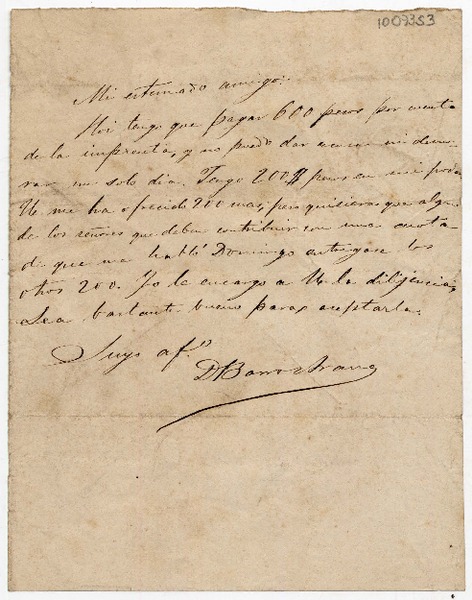 1009353
Mi estimado amigo:
Hoi tengo que pagar 600 pesos por cuenta
de la imprenta, y no puedo dar escusa ni demo-
rar un solo dia. Tengo 200$ pesos en mi poder
U. me ha ofrecido 200 mas, pero quisiera que alguno
de los señores que deben contribuir con una cuota
de que me habló Domingo entregase los
otros 200. Yo le encargo a U. la dilijencia,
Sea bastante bueno para aceptarla.
Suyo af.o
D Barros Arana